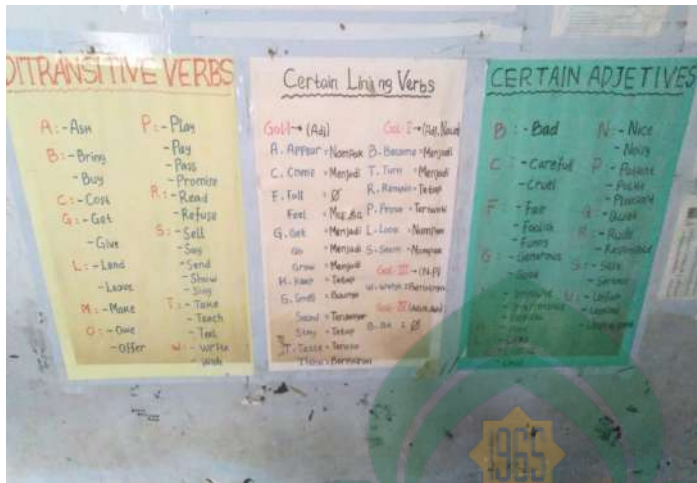 DITRANSITIVE VERBS
A:-Ask
B:-Bring
-Buy
C:-Cost
G:-Get
-Give
L:-Lend
-Leave
M:-Make
O:-Owe
-Offer
P:-Play
-Pay
-Pass
-Promise
R:-Read
-Refuse
S:-Sell
-Say
-Send
-Show
-Sing
T:-Take
-Teach
-Tell
W:-Write
-Wish
Certain Linjing Verbs
Gol-I→(Adj)
A. Appear =Nampak
C. Come =Menjadi
F. Fall =Ø
Feel
G. Get =Menjadi
Go =Menjadi
Grow =Menjadi
K. Keep =Tetap
S. Smell =Baunya
Sound =Terdengar
Stay =Tetap
T. Taste =Terasa
(Adj, Noun)
B. Become =Menjadi
T. Turn =Menjadi
R. Remain =Tetap
P. Prove =Terbukti
L. Look =Nampak
S. Seem =Nampak
Gol-III→(N.P)
W. Weigh
Gol-IV
B. Be = Ø
CERTAIN ADJETIVES
B:-Bad
C:-Careful
-Cruel
F:-Fair
-Foolish
-Funny
G:-Generous
-Good
N:-Nice
-Noisy
P:-Patient
-Polite
-Pleasant
Q:-Quiet
R:-Rude
-Responsible
S:-Safe
-Serious
U:-Unfair
1965